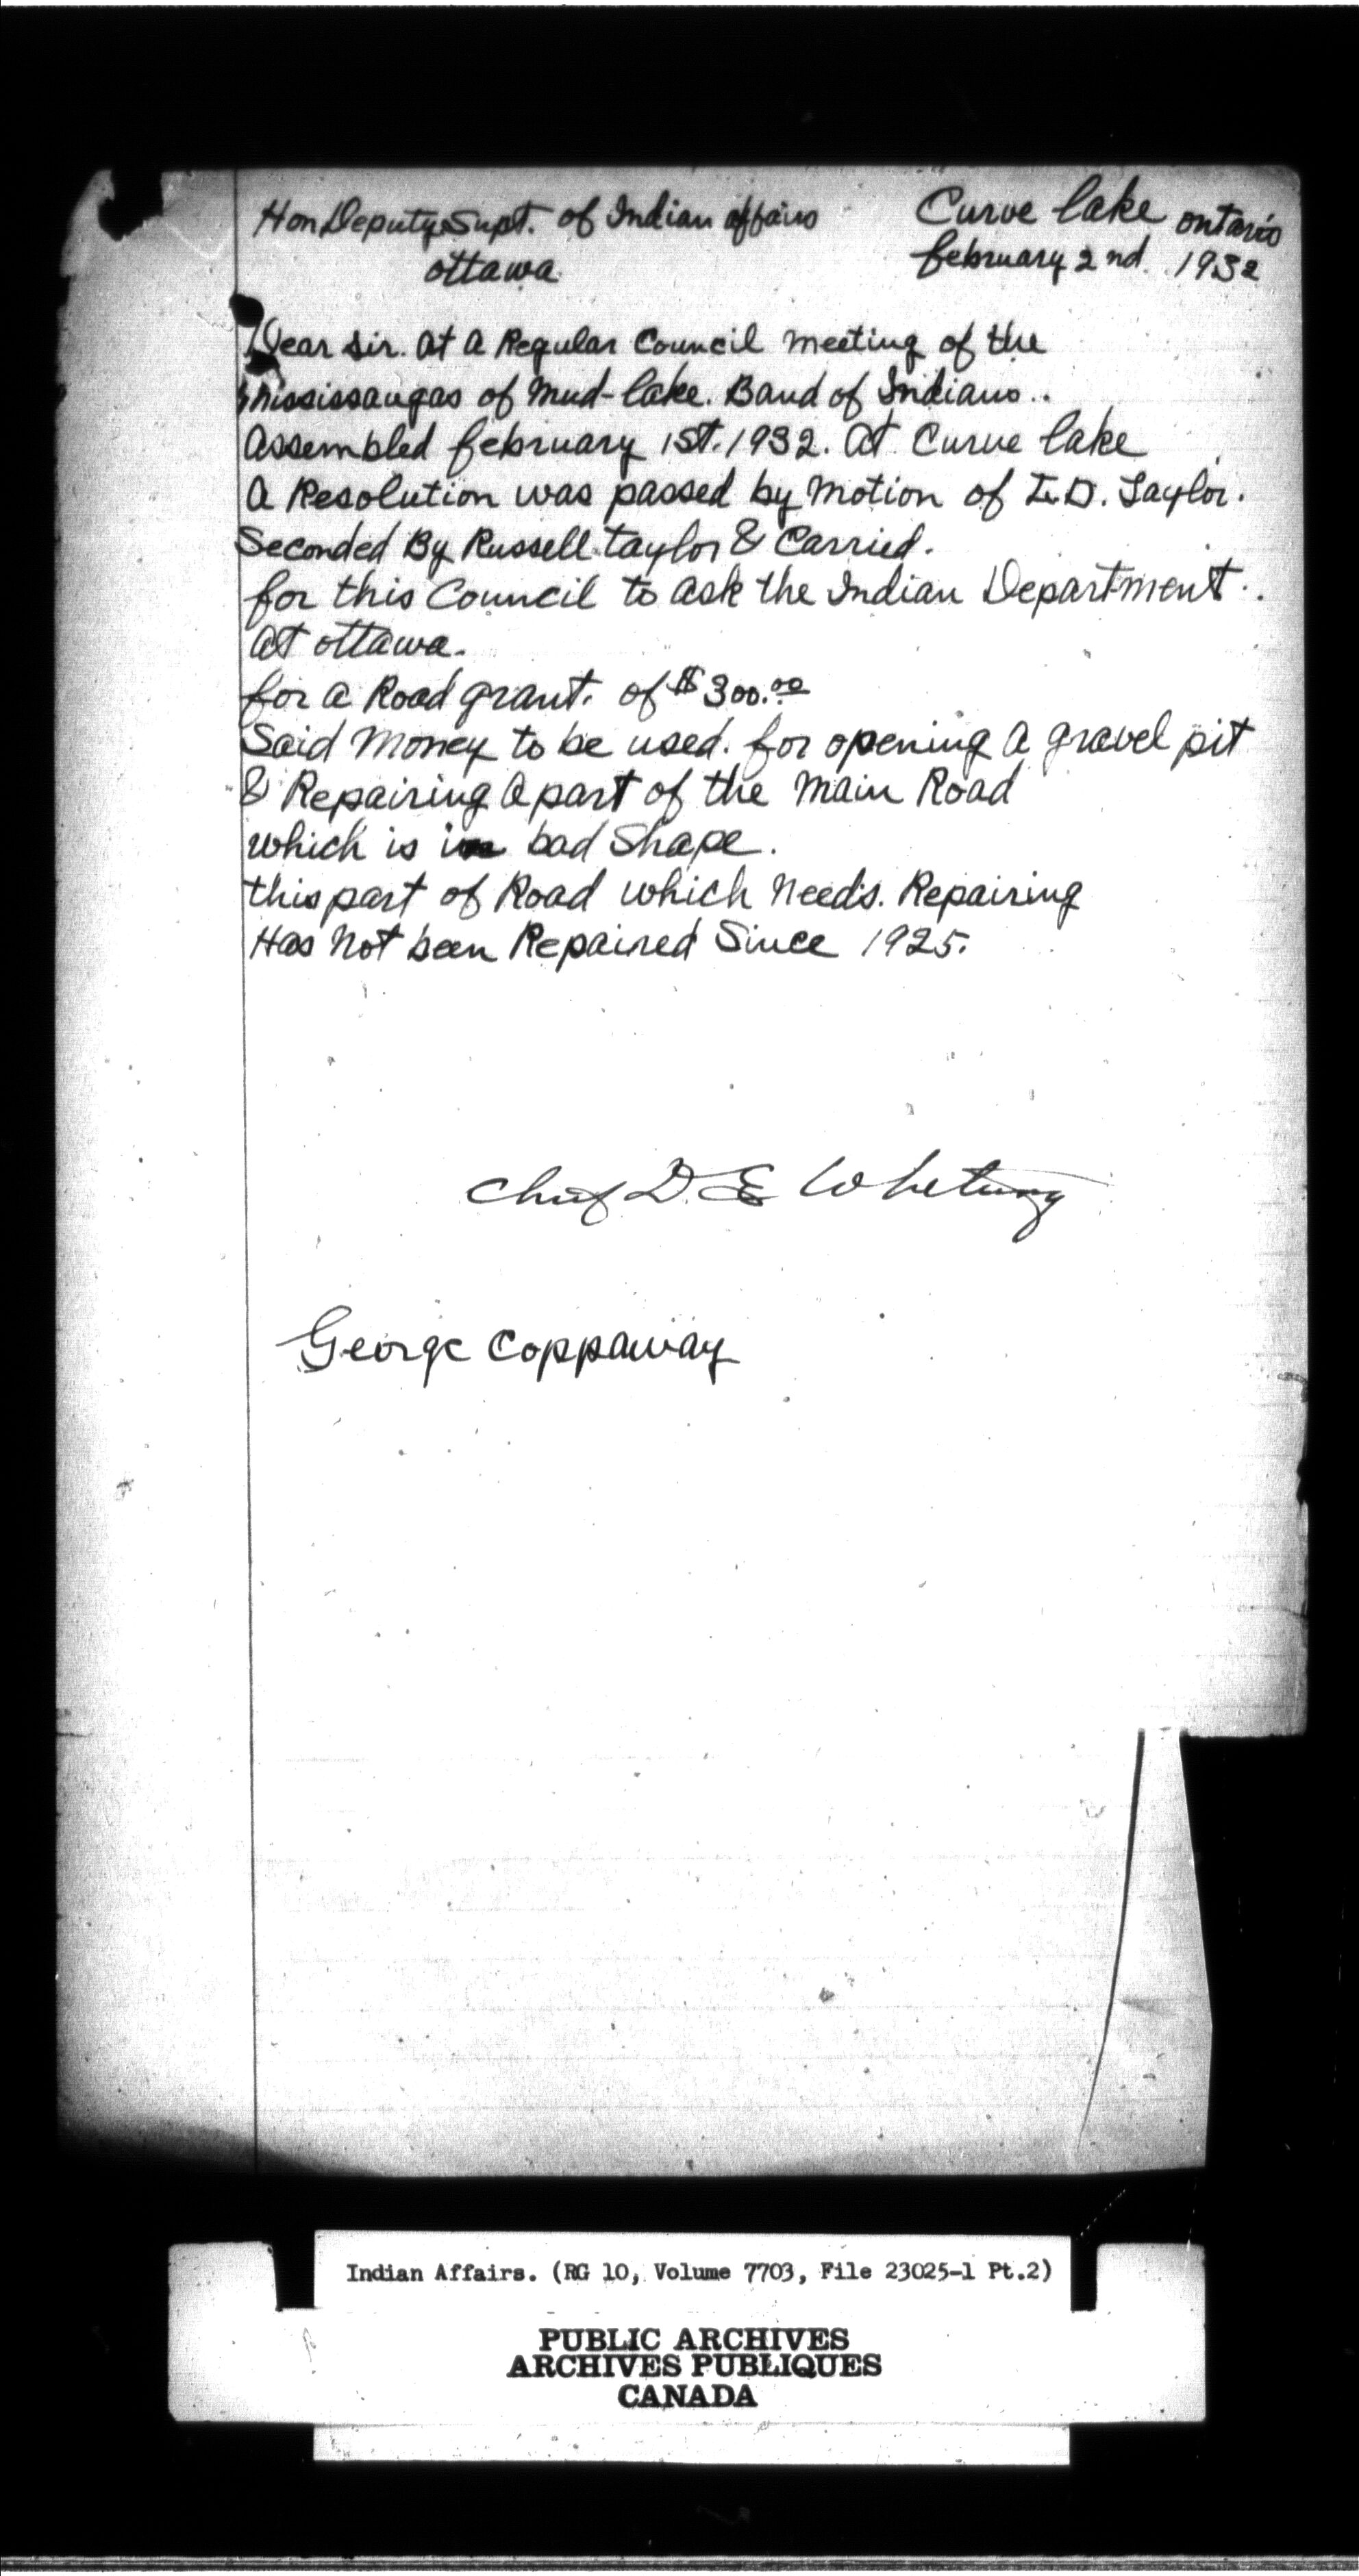 Hon Deputy Supt. of Indian affairs
Ottawa
Curve lake ontario
february 2nd. 1932
Dear sir. At a Regular Council meeting of the
Mississaugas of Mud-lake. Band of Indians..
Assembled february 1st. 1932. At Curve lake
A Resolution was passed by Motion of L.D. Taylor.
Seconded By Russell taylor & Carried.
for this Council to ask the Indian Department.
at ottawa.
for a Road grant. of $300.00
Said Money to be used. for opening a gravel pit
& Repairing a part of the Main Road
which is in bad Shape.
this part of Road which needs. Repairing
Has Not been Repaired Since 1925.
Chief D. E Whetung
George Coppaway
Indian Affairs. (RG 10, Volume 7703, File 23025-1 Pt.2)
PUBLIC ARCHIVES
ARCHIVES PUBLIQUES
CANADA